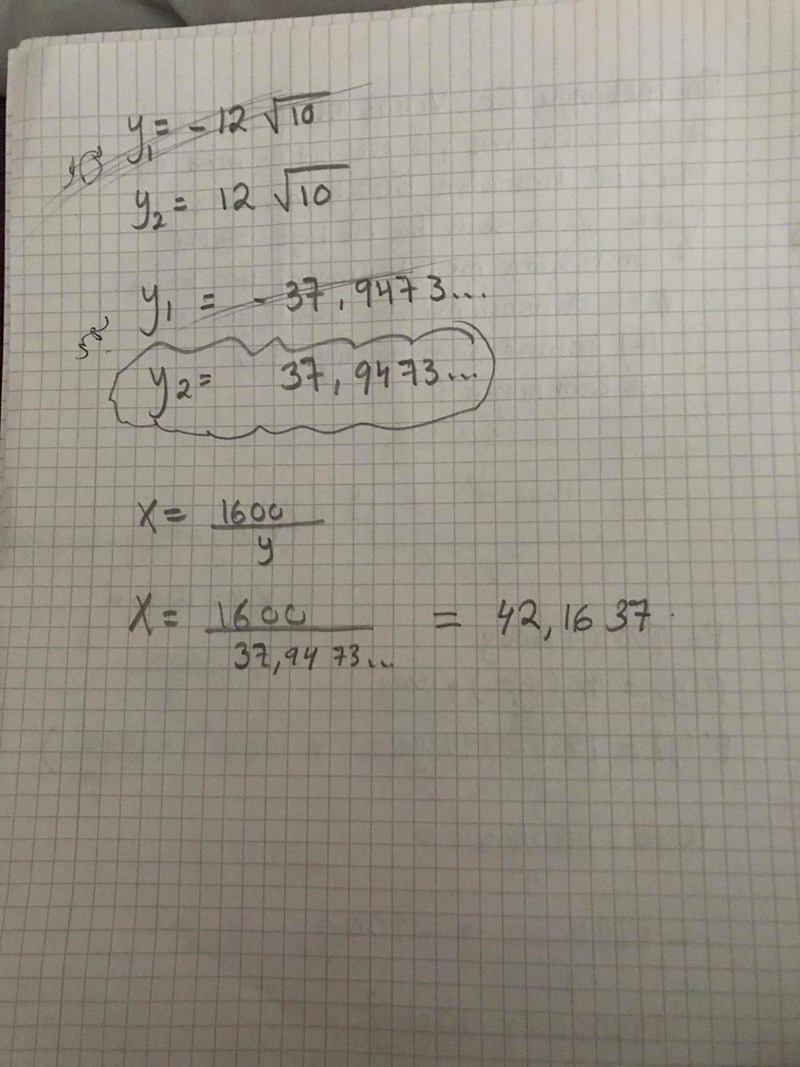 y₁ = - 12 √10
y₂ = 12 √10
y₁ = - 37,9473...
y₂ = 37,9473...
x = 1600/y
x = 1600/37,9473... = 42,1637